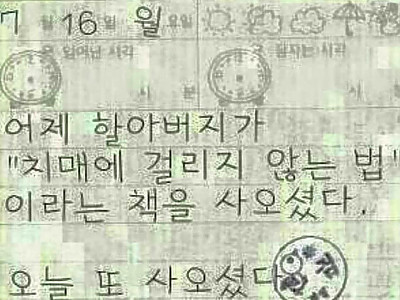 7월 16일 월요일
일어난 시각 잠자는 시각
시 분 시
어제 할아버지가
"치매에 걸리지 않는 법"
이라는 책을 사오셨다.
오늘 또 사오셨다